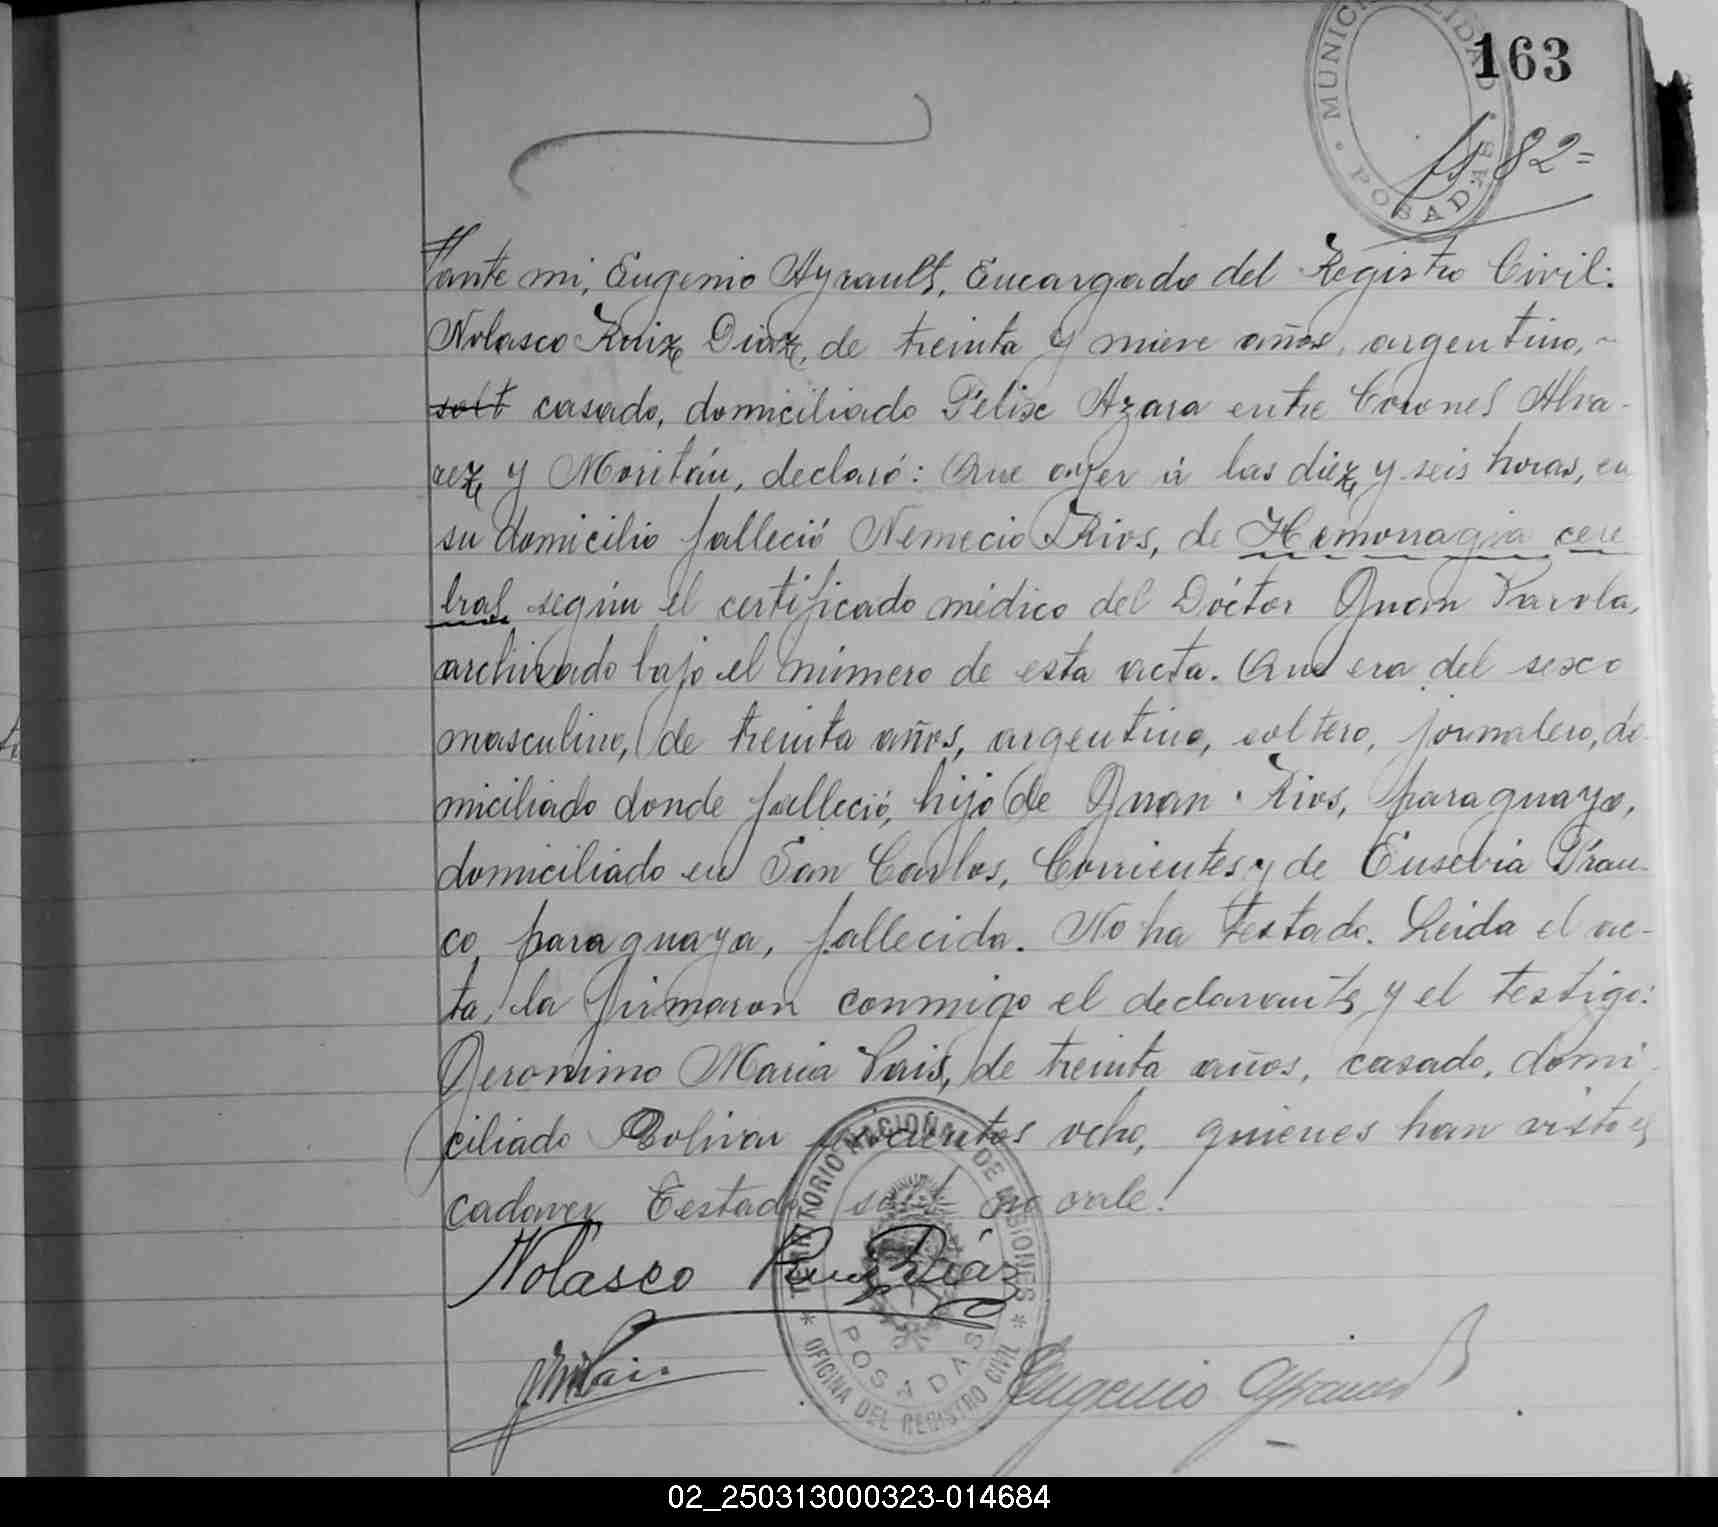 MUNICIPALIDAD · POSADAS ·
163
fs 82=
ante mi, Eugenio Ayrault, Encargado del Registro Civil:
Nolasco Ruiz Diaz, de treinta y nueve años, argentino, -
solt casado, domiciliado Felix Azara entre Coronel Alva-
rez y Moritán, declaró: Que ayer á las diez y seis horas, en
su domicilio falleció Nemecio Rios, de Hemorragia cere
bral según el certificado médico del Dóctor Juan Parola,
archivado bajo el número de esta acta. Que era del sexo
masculino, de treinta años, argentino, soltero, jornalero, do-
miciliado donde falleció, hijo de Juan Rios, paraguayo,
domiciliado en San Carlos, Corrientes y de Eusebia Fran-
co, paraguaya, fallecida. No ha testado. Leida el ac-
ta, la firmaron conmigo el declarante y el testigo:
Geronimo Maria Pais, de treinta años, casado, domi-
ciliado Bolivar ocho, quienes han visto el
cadaver Testado solt no vale.
Nolasco Ruiz Diáz
Eugenio Ayrault
TERRITORIO NACIONAL DE MISIONES * OFICINA DEL REGISTRO CIVIL *
POSADAS
02_250313000323-014684